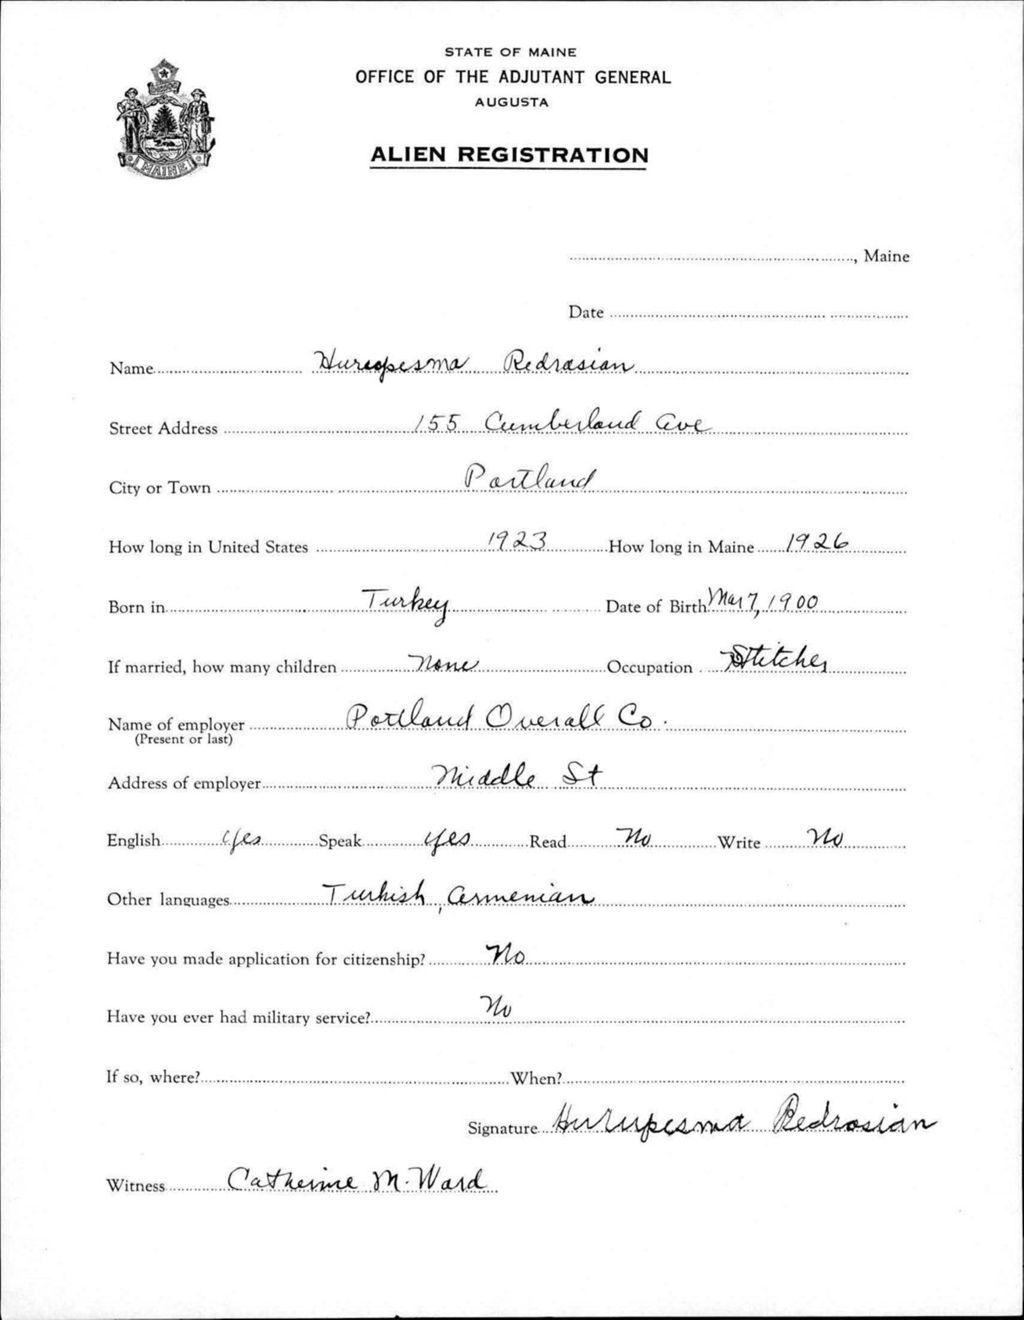 STATE OF MAINE
OFFICE OF THE ADJUTANT GENERAL
AUGUSTA
ALIEN REGISTRATION
MAINE
, Maine
Date
Name Redrosian
Street Address 155 Cumberland Ave
City or Town Portland
How long in United States 1923 How long in Maine 1926
Born in Turkey Date of Birth Mar 7, 1900
If married, how many children None Occupation Stitcher
Name of employer Portland Overall Co.
(Present or last)
Address of employer Middle St
English Yes Speak yes Read No Write No
Other languages Turkish, Armenian
Have you made application for citizenship? No
Have you ever had military service? No
If so, where? When?
Signature Hurupesma Redrosian
Witness Catherine M. Ward